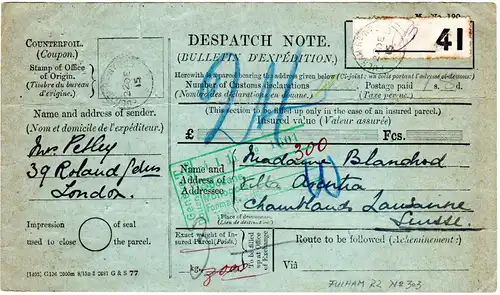 M. No. 190
COUNTERFOIL.
(Coupon.)
Stamp of Office
of Origin.
(Timbre du bureau
d'origine.)
DESPATCH NOTE.
(BULLETIN D'EXPÉDITION.)
41
Herewith a parcel bearing the address given below (Ci-joint: un colis portant l'adresse ci-dessous:)
Number of Customs declarations
(Nombre des déclarations en douane.)
Postage paid
(Taxe perçue.)
s. d.
24
(This section to be filled up only in the case of an insured parcel.)
Insured value (Valeur assurée)
£
Fcs.
300
Name and address of sender.
(Nom et domicile de l'expéditeur.)
Mrs Petley
39 Roland Gdns
London.
Name and
Address of
Addressee
Madame Blanchod
Villa
Chamblands Lausanne
Suisse
(Place of destination.)
(Lieu de destination.)
Impression of seal
used to close the parcel.
Exact weight of In-
sured Parcel (Poids.)
kg.
To be filled
up at Office
of Exchange
Route to be followed (Acheminement:)
Viâ
G & S 77
FULHAM R2 No 303